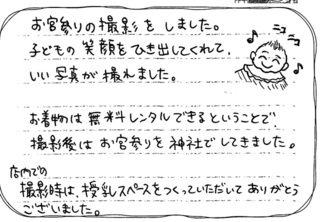 お宮参りの撮影をしました。
子どもの笑顔をひき出してくれて、
いい写真が撮れました。
ニコニコ
お着物は無料レンタルできるということで
撮影後はお宮参りを神社でしてきました。
店内での
撮影時は、授乳スペースをつくっていただいてありがとう
ございました。